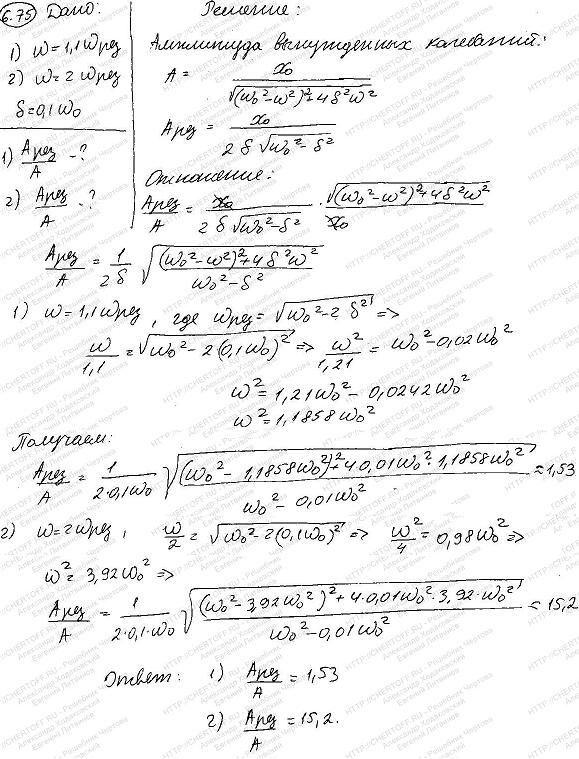 6.75 Дано:
1) ω = 1,1 ωрез
2) ω = 2 ωрез
δ = 0,1 ω₀
1) Aрез/A - ?
2) Aрез/A - ?
Решение:
Амплитуда вынужденных колебаний:
A = x₀/√((ω₀²-ω²)²+4δ²ω²)
Aрез = x₀/(2δ√(ω₀²-δ²))
Отношение:
Aрез/A = x₀/(2δ√(ω₀²-δ²)) · √((ω₀²-ω²)²+4δ²ω²)/x₀
Aрез/A = 1/2δ √(((ω₀²-ω²)²+4δ²ω²)/(ω₀²-δ²))
1) ω = 1,1 ωрез, где ωрез = √(ω₀²-2δ²) =>
ω/1,1 = √(ω₀²-2(0,1ω₀)²) => ω²/1,21 = ω₀²-0,02ω₀²
ω² = 1,21ω₀² - 0,0242ω₀²
ω² = 1,1858ω₀²
Получаем:
Aрез/A = 1/(2·0,1ω₀) √(((ω₀²-1,1858ω₀²)²+4·0,01ω₀²·1,1858ω₀²)/(ω₀²-0,01ω₀²)) = 1,53
2) ω = 2ωрез, ω/2 = √(ω₀²-2(0,1ω₀)²) => ω²/4 = 0,98ω₀² =>
ω² = 3,92ω₀² =>
Aрез/A = 1/(2·0,1·ω₀) √(((ω₀²-3,92ω₀²)²+4·0,01ω₀²·3,92·ω₀²)/(ω₀²-0,01ω₀²)) = 15,2
Ответ: 1) Aрез/A = 1,53
2) Aрез/A = 15,2.
HTTP://CHERTOFF.RU - Решебник Чертова